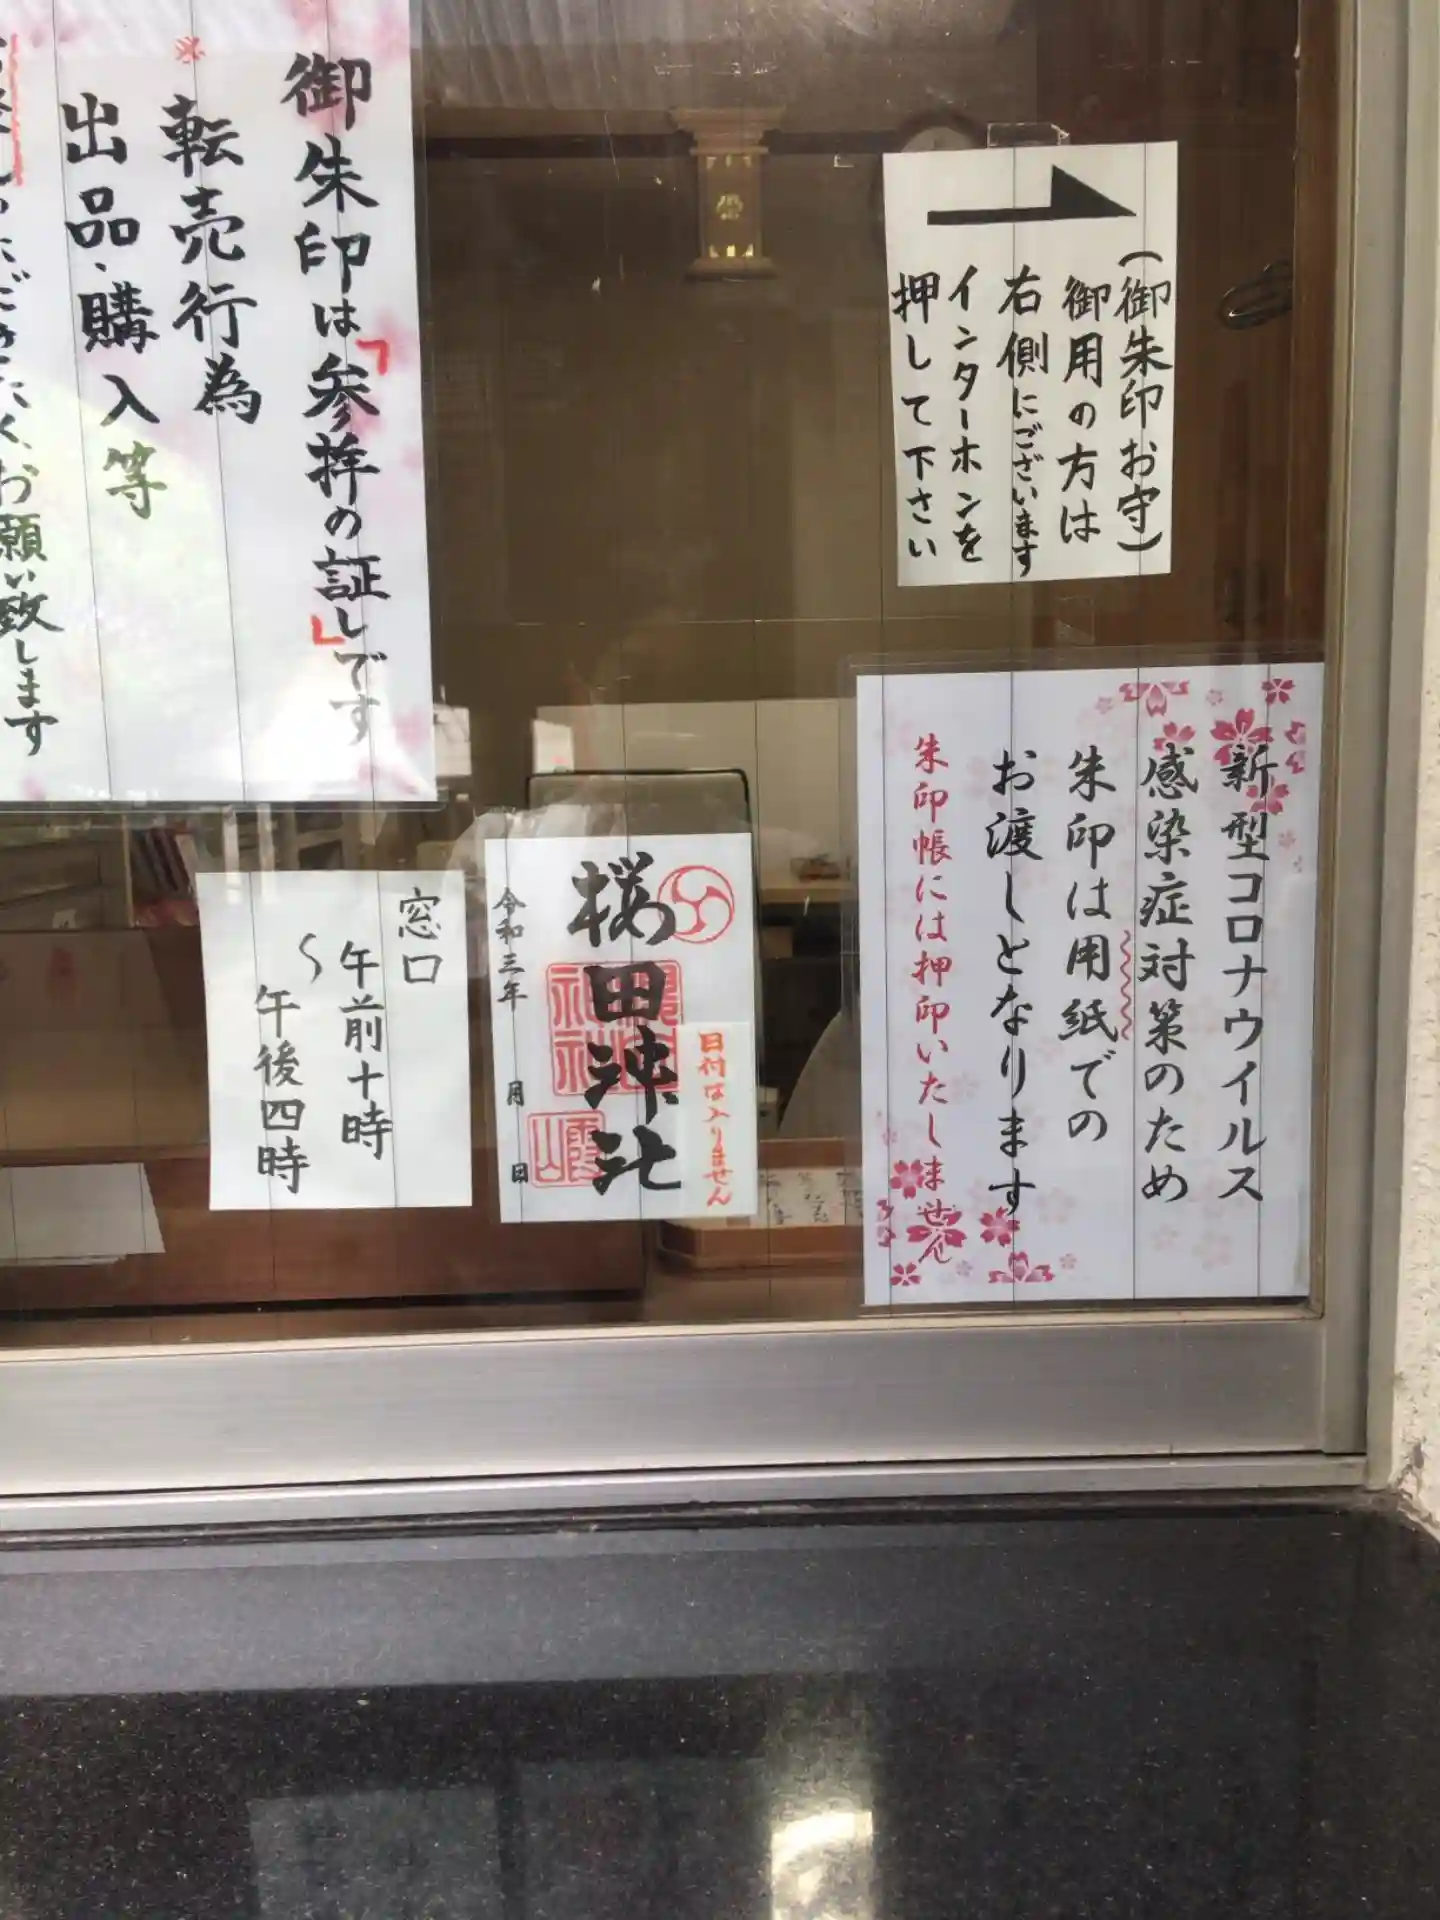 (御朱印お守)
御用の方は
右側にございます
インターホンを
押して下さい
御朱印は「参拝の証し」です
※転売行為
出品、購入等
お願い致します
新型コロナウイルス
感染症対策のため
朱印は用紙での
お渡しとなります
朱印帳には押印いたしません
日付は入りません
櫻田神社
令和三年 月 日
窓口
午前十時
〜
午後四時